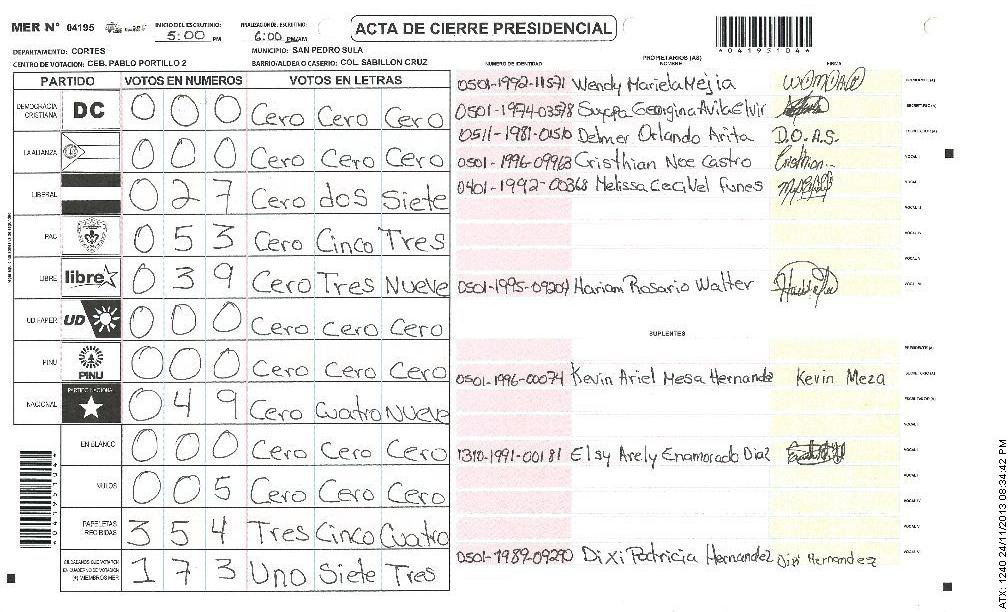 MER N° 04195
INICIO DEL ESCRUTINIO:
5:00 PM
FINALIZACION DEL ESCRUTINIO:
6:00 PM/AM
ACTA DE CIERRE PRESIDENCIAL
04195104
DEPARTAMENTO: CORTES
MUNICIPIO: SAN PEDRO SULA
CENTRO DE VOTACION: CEB. PABLO PORTILLO 2
BARRIO/ALDEA O CASERIO: COL. SABILLON CRUZ
PARTIDO VOTOS EN NUMEROS VOTOS EN LETRAS
DEMOCRACIA CRISTIANA DC 0 0 0 Cero Cero Cero
LA ALIANZA 0 0 0 Cero Cero Cero
LIBERAL 0 2 7 Cero dos Siete
PAC 0 5 3 Cero Cinco Tres
LIBRE libre 0 3 9 Cero Tres Nueve
UD FAPER UD 0 0 0 Cero Cero Cero
PINU PINU 0 0 0 Cero Cero Cero
NACIONAL PARTIDO NACIONAL 0 4 9 Cero Cuatro Nueve
EN BLANCO 0 0 0 Cero Cero Cero
NULOS 0 0 5 Cero Cero Cero
PAPELETAS RECIBIDAS 3 5 4 Tres Cinco Cuatro
CIUDADANOS QUE VOTARON EN CUADERNO DE VOTACION (+) MIEMBROS MER 1 7 3 Uno Siete Tres
PROPIETARIOS (AS)
NUMERO DE IDENTIDAD NOMBRE FIRMA
0501-1992-11571 Wendy Mariela Mejia
0501-1974-03578 Suyapa Georgina Avila Elvir
0511-1981-01510 Delmer Orlando Arita D.O.A.S.
0501-1996-09963 Cristhian Noe Castro Cristhian
0401-1992-00368 Melissa Cecibel Funes
0501-1995-09204 Mariam Rosario Walter
SUPLENTES
0501-1996-00074 Kevin Ariel Mesa Hernande Kevin Meza
1310-1991-00181 Elsy Arely Enamorado Diaz
0501-1989-09290 Dixi Patricia Hernandez Dixi Hernandez
04195104
ATX: 1240 24/11/2013 08:34:42 PM